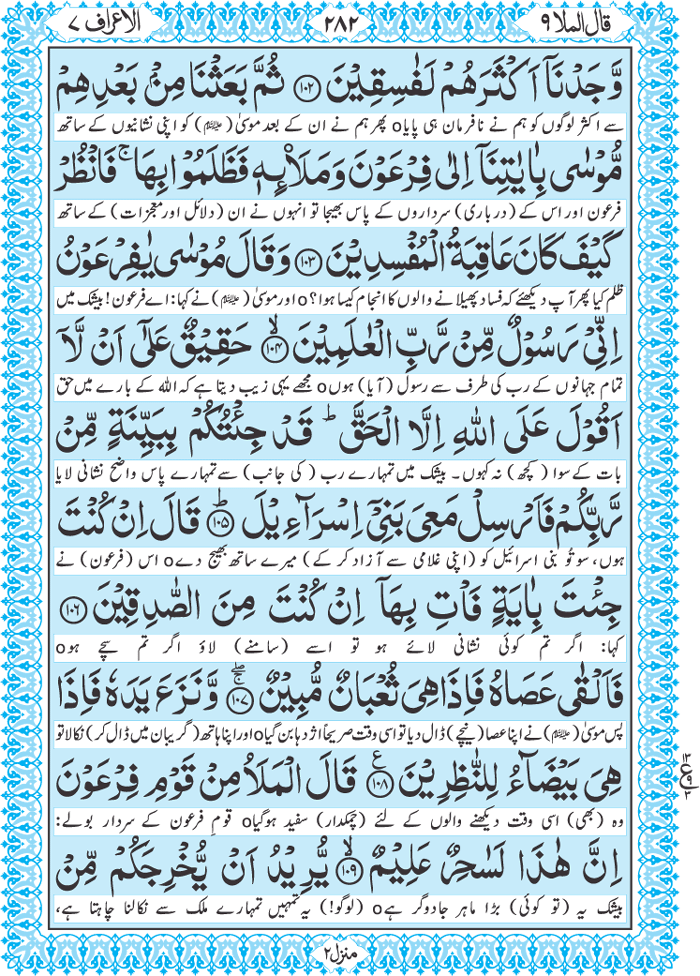 قال الملا ۹
۲۸۲
الاعراف ۷
وَّجَدْنَاۤ اَكْثَرَهُمْ لَفٰسِقِیْنَ ﴿۱۰۲﴾ ثُمَّ بَعَثْنَا مِنْۢ بَعْدِهِمْ
سے اکثر لوگوں کو ہم نے نافرمان ہی پایا o پھر ہم نے ان کے بعد موسیٰ (علیہ السلام) کو اپنی نشانیوں کے ساتھ
مُّوْسٰی بِاٰیٰتِنَاۤ اِلٰی فِرْعَوْنَ وَ مَلَا۠ئِهٖ فَظَلَمُوْا بِهَا ۚ فَانْظُرْ
فرعون اور اس کے (درباری) سرداروں کے پاس بھیجا تو انہوں نے ان (دلائل اور معجزات) کے ساتھ
كَیْفَ كَانَ عَاقِبَةُ الْمُفْسِدِیْنَ ﴿۱۰۳﴾ وَ قَالَ مُوْسٰی یٰفِرْعَوْنُ
ظلم کیا پھر آپ دیکھئے کہ فساد پھیلانے والوں کا انجام کیسا ہوا؟ o اور موسیٰ (علیہ السلام) نے کہا: اے فرعون! بیشک میں
اِنِّیْ رَسُوْلٌ مِّنْ رَّبِّ الْعٰلَمِیْنَ ﴿۱۰۴﴾ۙ حَقِیْقٌ عَلٰۤی اَنْ لَّاۤ
تمام جہانوں کے رب کی طرف سے رسول (آیا) ہوں o مجھے یہی زیب دیتا ہے کہ اللہ کے بارے میں حق
اَقُوْلَ عَلَی اللّٰهِ اِلَّا الْحَقَّ ؕ قَدْ جِئْتُكُمْ بِبَیِّنَةٍ مِّنْ
بات کے سوا (کچھ) نہ کہوں۔ بیشک میں تمہارے رب (کی جانب) سے تمہارے پاس واضح نشانی لایا
رَّبِّكُمْ فَاَرْسِلْ مَعِیَ بَنِیْۤ اِسْرَآءِیْلَ ﴿۱۰۵﴾ؕ قَالَ اِنْ كُنْتَ
ہوں، سو تُو بنی اسرائیل کو (اپنی غلامی سے آزاد کر کے) میرے ساتھ بھیج دے o اس (فرعون) نے
جِئْتَ بِاٰیَةٍ فَاْتِ بِهَاۤ اِنْ كُنْتَ مِنَ الصّٰدِقِیْنَ ﴿۱۰۶﴾
کہا: اگر تم کوئی نشانی لائے ہو تو اسے (سامنے) لاؤ اگر تم سچے ہو o
فَاَلْقٰی عَصَاهُ فَاِذَا هِیَ ثُعْبَانٌ مُّبِیْنٌ ﴿۱۰۷﴾ۚۖ وَّ نَزَعَ یَدَهٗ فَاِذَا
پس موسیٰ (علیہ السلام) نے اپنا عصا (نیچے) ڈال دیا تو اسی وقت صریحاً اژدہا بن گیا o اور اپنا ہاتھ (گریبان میں ڈال کر) نکالا تو
هِیَ بَیْضَآءُ لِلنّٰظِرِیْنَ ﴿۱۰۸﴾ ع قَالَ الْمَلَاُ مِنْ قَوْمِ فِرْعَوْنَ
وہ (بھی) اسی وقت دیکھنے والوں کے لئے (چمکدار) سفید ہوگیا o قومِ فرعون کے سردار بولے:
۱۳ ع ۹ ۳
اِنَّ هٰذَا لَسٰحِرٌ عَلِیْمٌ ﴿۱۰۹﴾ۙ یُّرِیْدُ اَنْ یُّخْرِجَكُمْ مِّنْ
بیشک یہ (تو کوئی) بڑا ماہر جادوگر ہے o (لوگو!) یہ تمہیں تمہارے ملک سے نکالنا چاہتا ہے،
منزل ۲